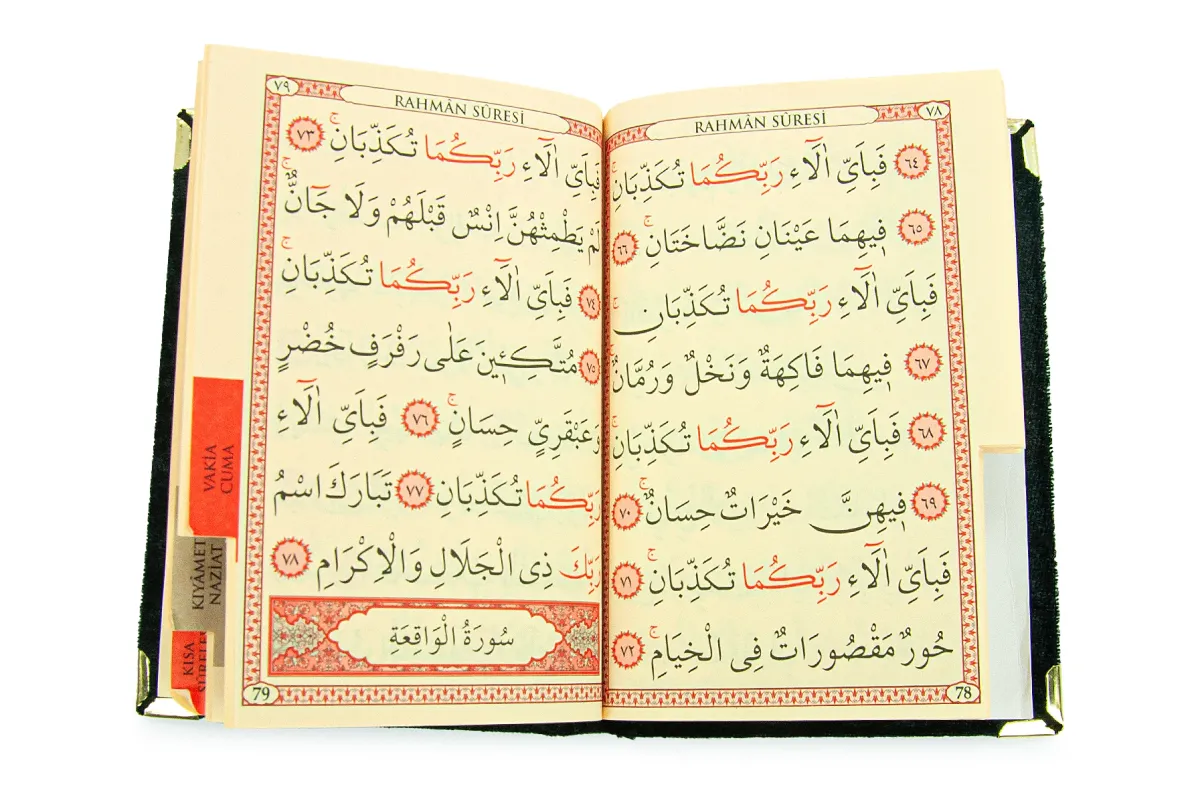 ٧٨
RAHMÂN SÛRESİ
٦٤ فَبِاَيِّ اٰلَٓاءِ رَبِّكُمَا تُكَذِّبَانِۚ
٦٥ فٖيهِمَا عَيْنَانِ نَضَّاخَتَانِۚ ٦٦
فَبِاَيِّ اٰلَٓاءِ رَبِّكُمَا تُكَذِّبَانِۚ
٦٧ فٖيهِمَا فَاكِهَةٌ وَنَخْلٌ وَرُمَّانٌۚ
٦٨ فَبِاَيِّ اٰلَٓاءِ رَبِّكُمَا تُكَذِّبَانِۚ
٦٩ فٖيهِنَّ خَيْرَاتٌ حِسَانٌۚ ٧٠
فَبِاَيِّ اٰلَٓاءِ رَبِّكُمَا تُكَذِّبَانِۚ ٧١
حُورٌ مَقْصُورَاتٌ فِي الْخِيَامِۚ ٧٢
78
٧٩
RAHMÂN SÛRESİ
فَبِاَيِّ اٰلَٓاءِ رَبِّكُمَا تُكَذِّبَانِۚ ٧٣
لَمْ يَطْمِثْهُنَّ اِنْسٌ قَبْلَهُمْ وَلَا جَٓانٌّۚ
٧٤ فَبِاَيِّ اٰلَٓاءِ رَبِّكُمَا تُكَذِّبَانِۚ
٧٥ مُتَّكِـٖٔينَ عَلٰى رَفْرَفٍ خُضْرٍ
وَعَبْقَرِيٍّ حِسَانٍۚ ٧٦ فَبِاَيِّ اٰلَٓاءِ
رَبِّكُمَا تُكَذِّبَانِ ٧٧ تَبَارَكَ اسْمُ
رَبِّكَ ذِي الْجَلَالِ وَالْاِكْرَامِ ٧٨
سُورَةُ الْوَاقِعَةِ
79
VAKİA
CUMA
KIYÂMET
NAZİAT
KISA